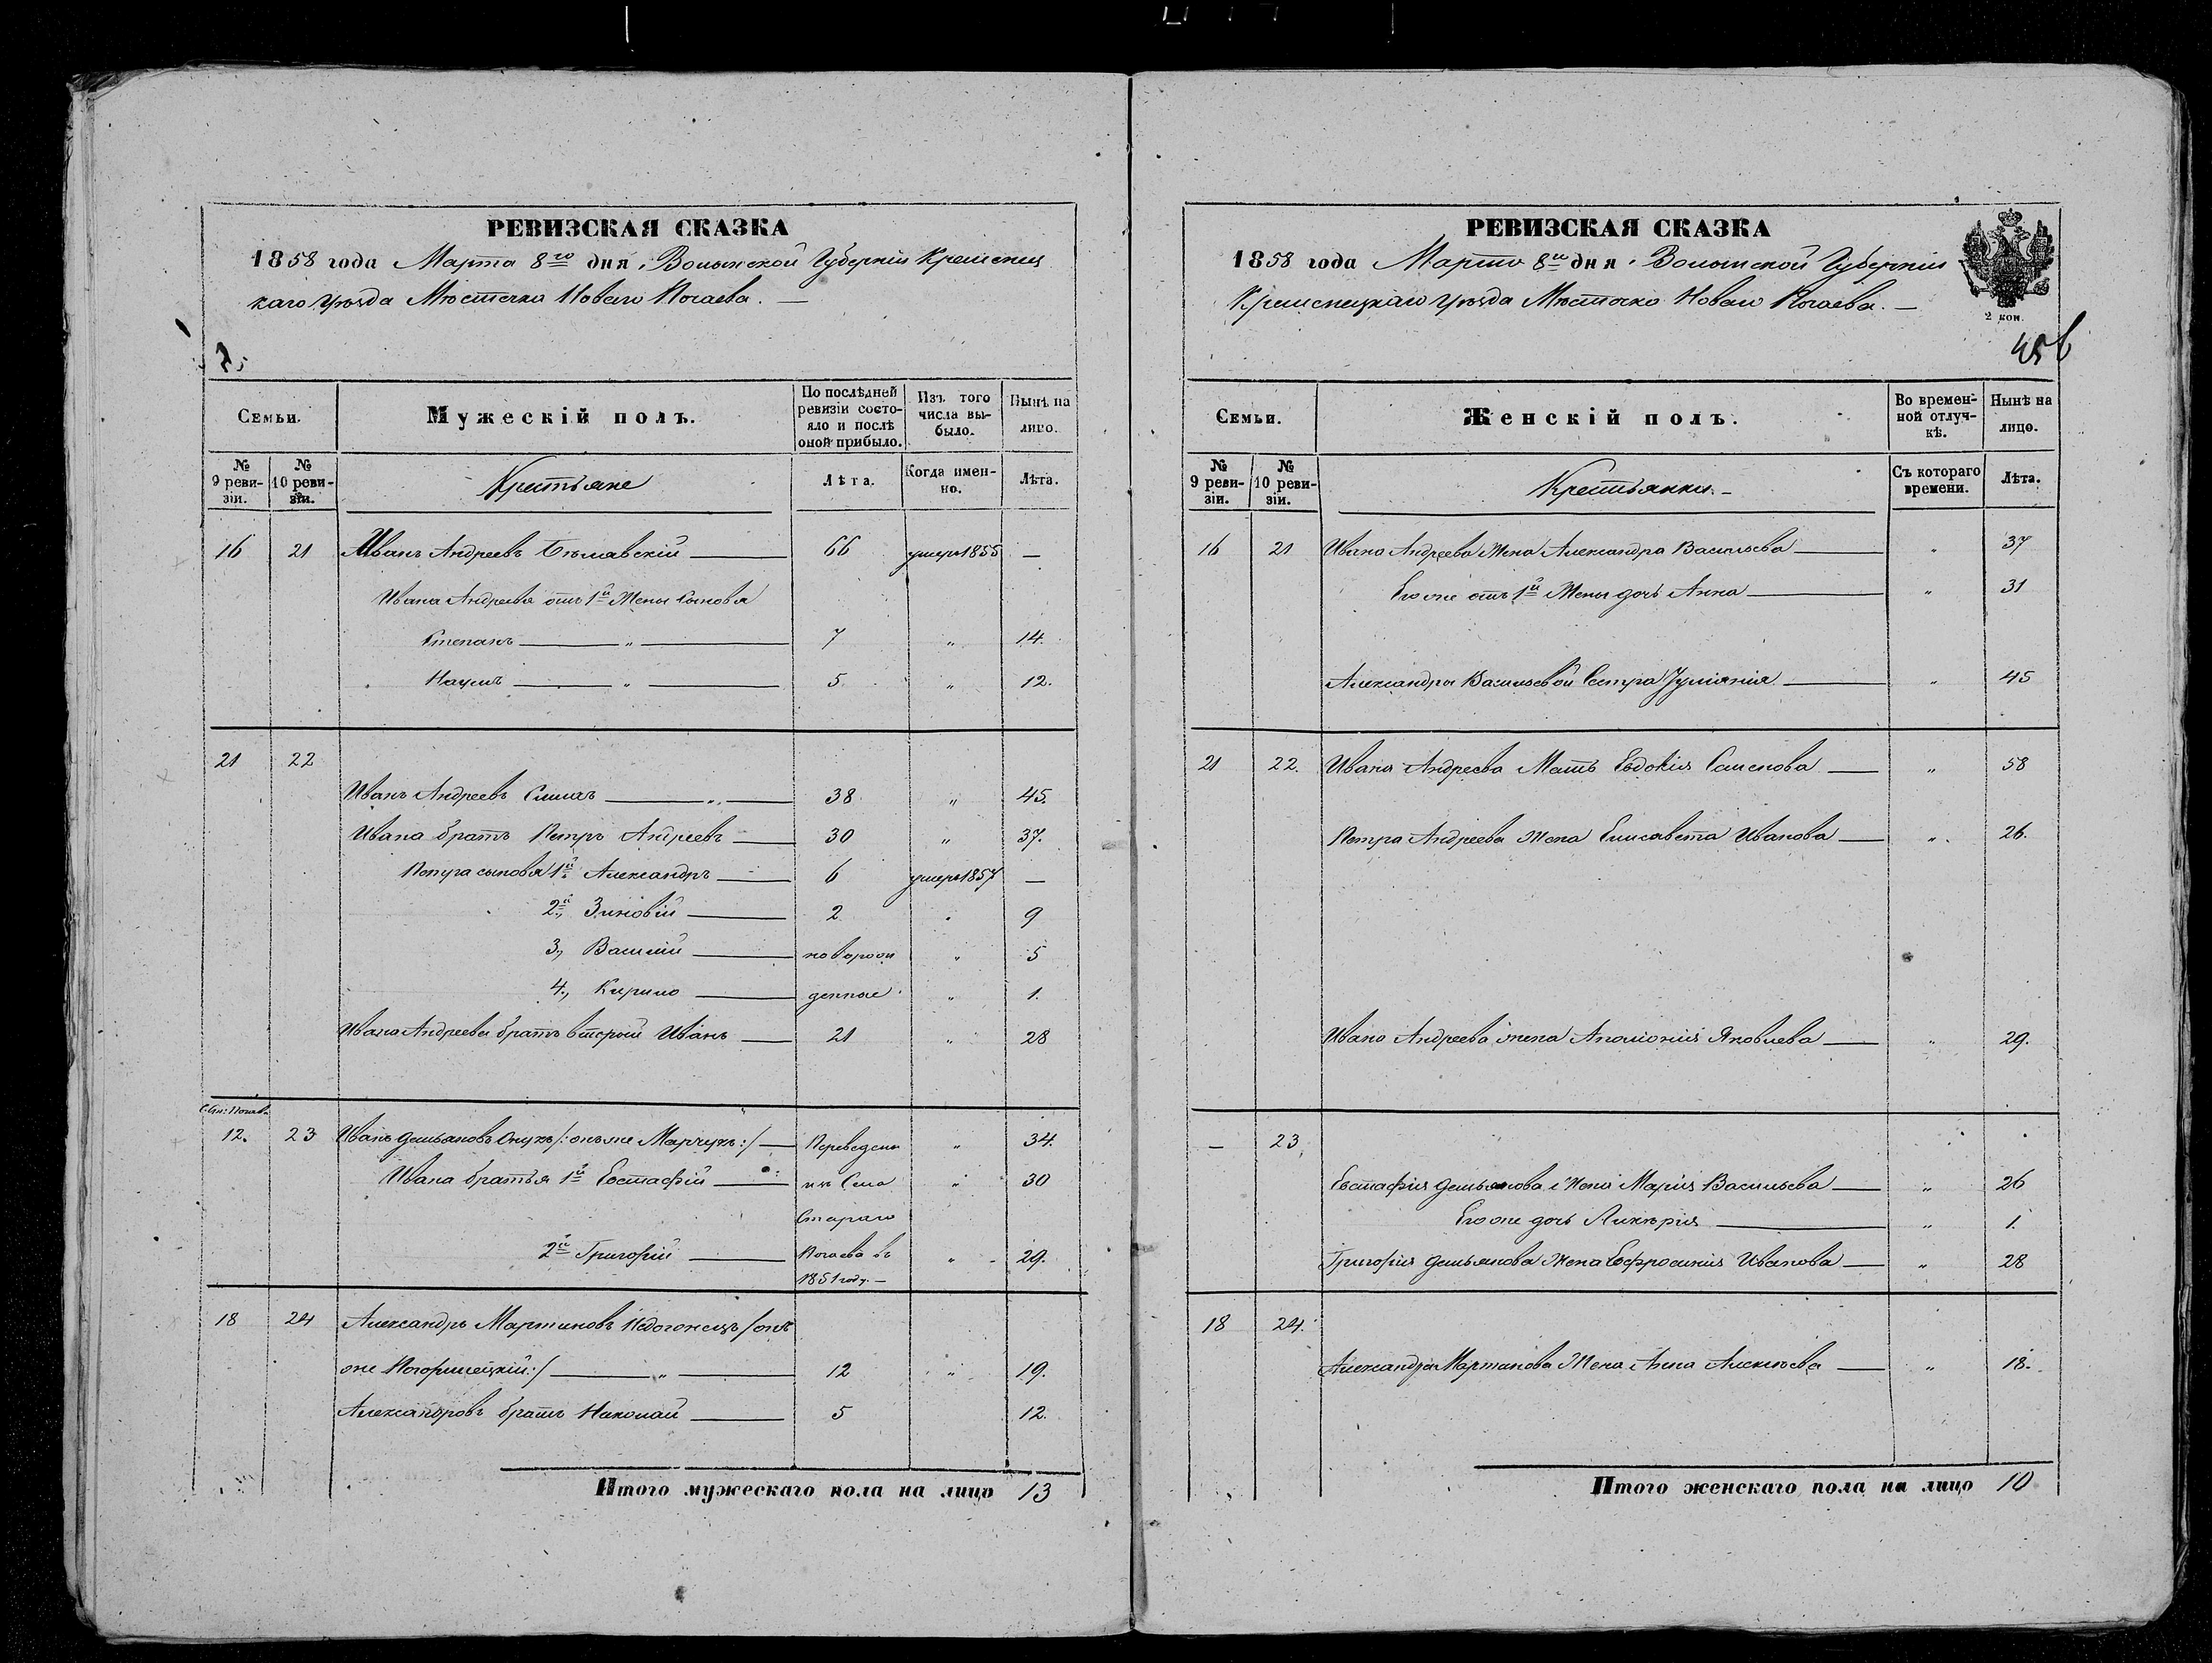 РЕВИЗСКАЯ СКАЗКА
1858 года Марта 8го дня Волынской Губерніи Кременец
каго Уѣзда Мѣстечка Новаго Почаева. —
Семьи.
Мужескій полъ.
По послѣдней ревизіи состояло и послѣ оной прибыло.
Изъ того числа выбыло.
Нынѣ на лицо.
№ 9 ревизіи.
№ 10 ревизіи.
Крестьяне
Лѣта.
Когда именно.
Лѣта.
16 21 Иванъ Андреевъ 66 умеръ 1855 —
Ивана Андреева отъ 1й Жены Сыновья
Степанъ — „ — 7 „ 14.
Наумъ — „ — 5 „ 12.
21 22
Иванъ Андреевъ — „ — 38 „ 45.
Ивана братъ Петръ Андреевъ — 30 „ 37.
Петра сыновья 1й Александръ — 6 умеръ 1857 —
2й Зиновій — 2 „ 9
3, Василій — новорож „ 5
4, Кирило — денные „ 1.
Ивана Андреева братъ вторый Иванъ — 21 „ 28
12. 23 Иванъ Демьяновъ Онукъ /: онъ же Марчукъ :/ — Переведены „ 34.
Ивана братья 1й Евстафій — изъ Села „ 30
Стараго
2й Григорій — Почаева въ „ 29.
1851 году. —
18 24 Александръ Мартиновъ /: онъ
же :/ — „ — 12 „ 19.
Александровъ братъ Николай — 5 12.
Итого мужескаго пола на лицо 13
РЕВИЗСКАЯ СКАЗКА
1858 года Марта 8го дня Волынской Губерніи
Кременецкаго Уѣзда Мѣстечка Новаго Почаева. —
2 коп.
456
Семьи.
Женскій полъ.
Во временной отлучкѣ.
Нынѣ на лицо.
№ 9 ревизіи.
№ 10 ревизіи.
Крестьянки. —
Съ котораго времени.
Лѣта.
16 21 Ивана Андреева Жена Александра Васильева — „ 37
Его же отъ 1й Жены дочь Анна — „ 31
Александры Васильевой Сестра Іуліянія — „ 45
21 22. Ивана Андреева Мать Евдокія Семенова — „ 58
Петра Андреева Жена Елисавета Иванова — „ 26.
Ивана Андреева жена Аполонія Яковлева — „ 29.
— 23
Евстафія Демьянова Жена Марія Васильева — „ 26
Его же дочь Ликерія — „ 1.
Григорія Демьянова Жена Евфросинія Иванова — „ 28
18 24.
Александра Мартинова Жена Анна Алексѣева — „ 18.
Итого женскаго пола на лицо 10